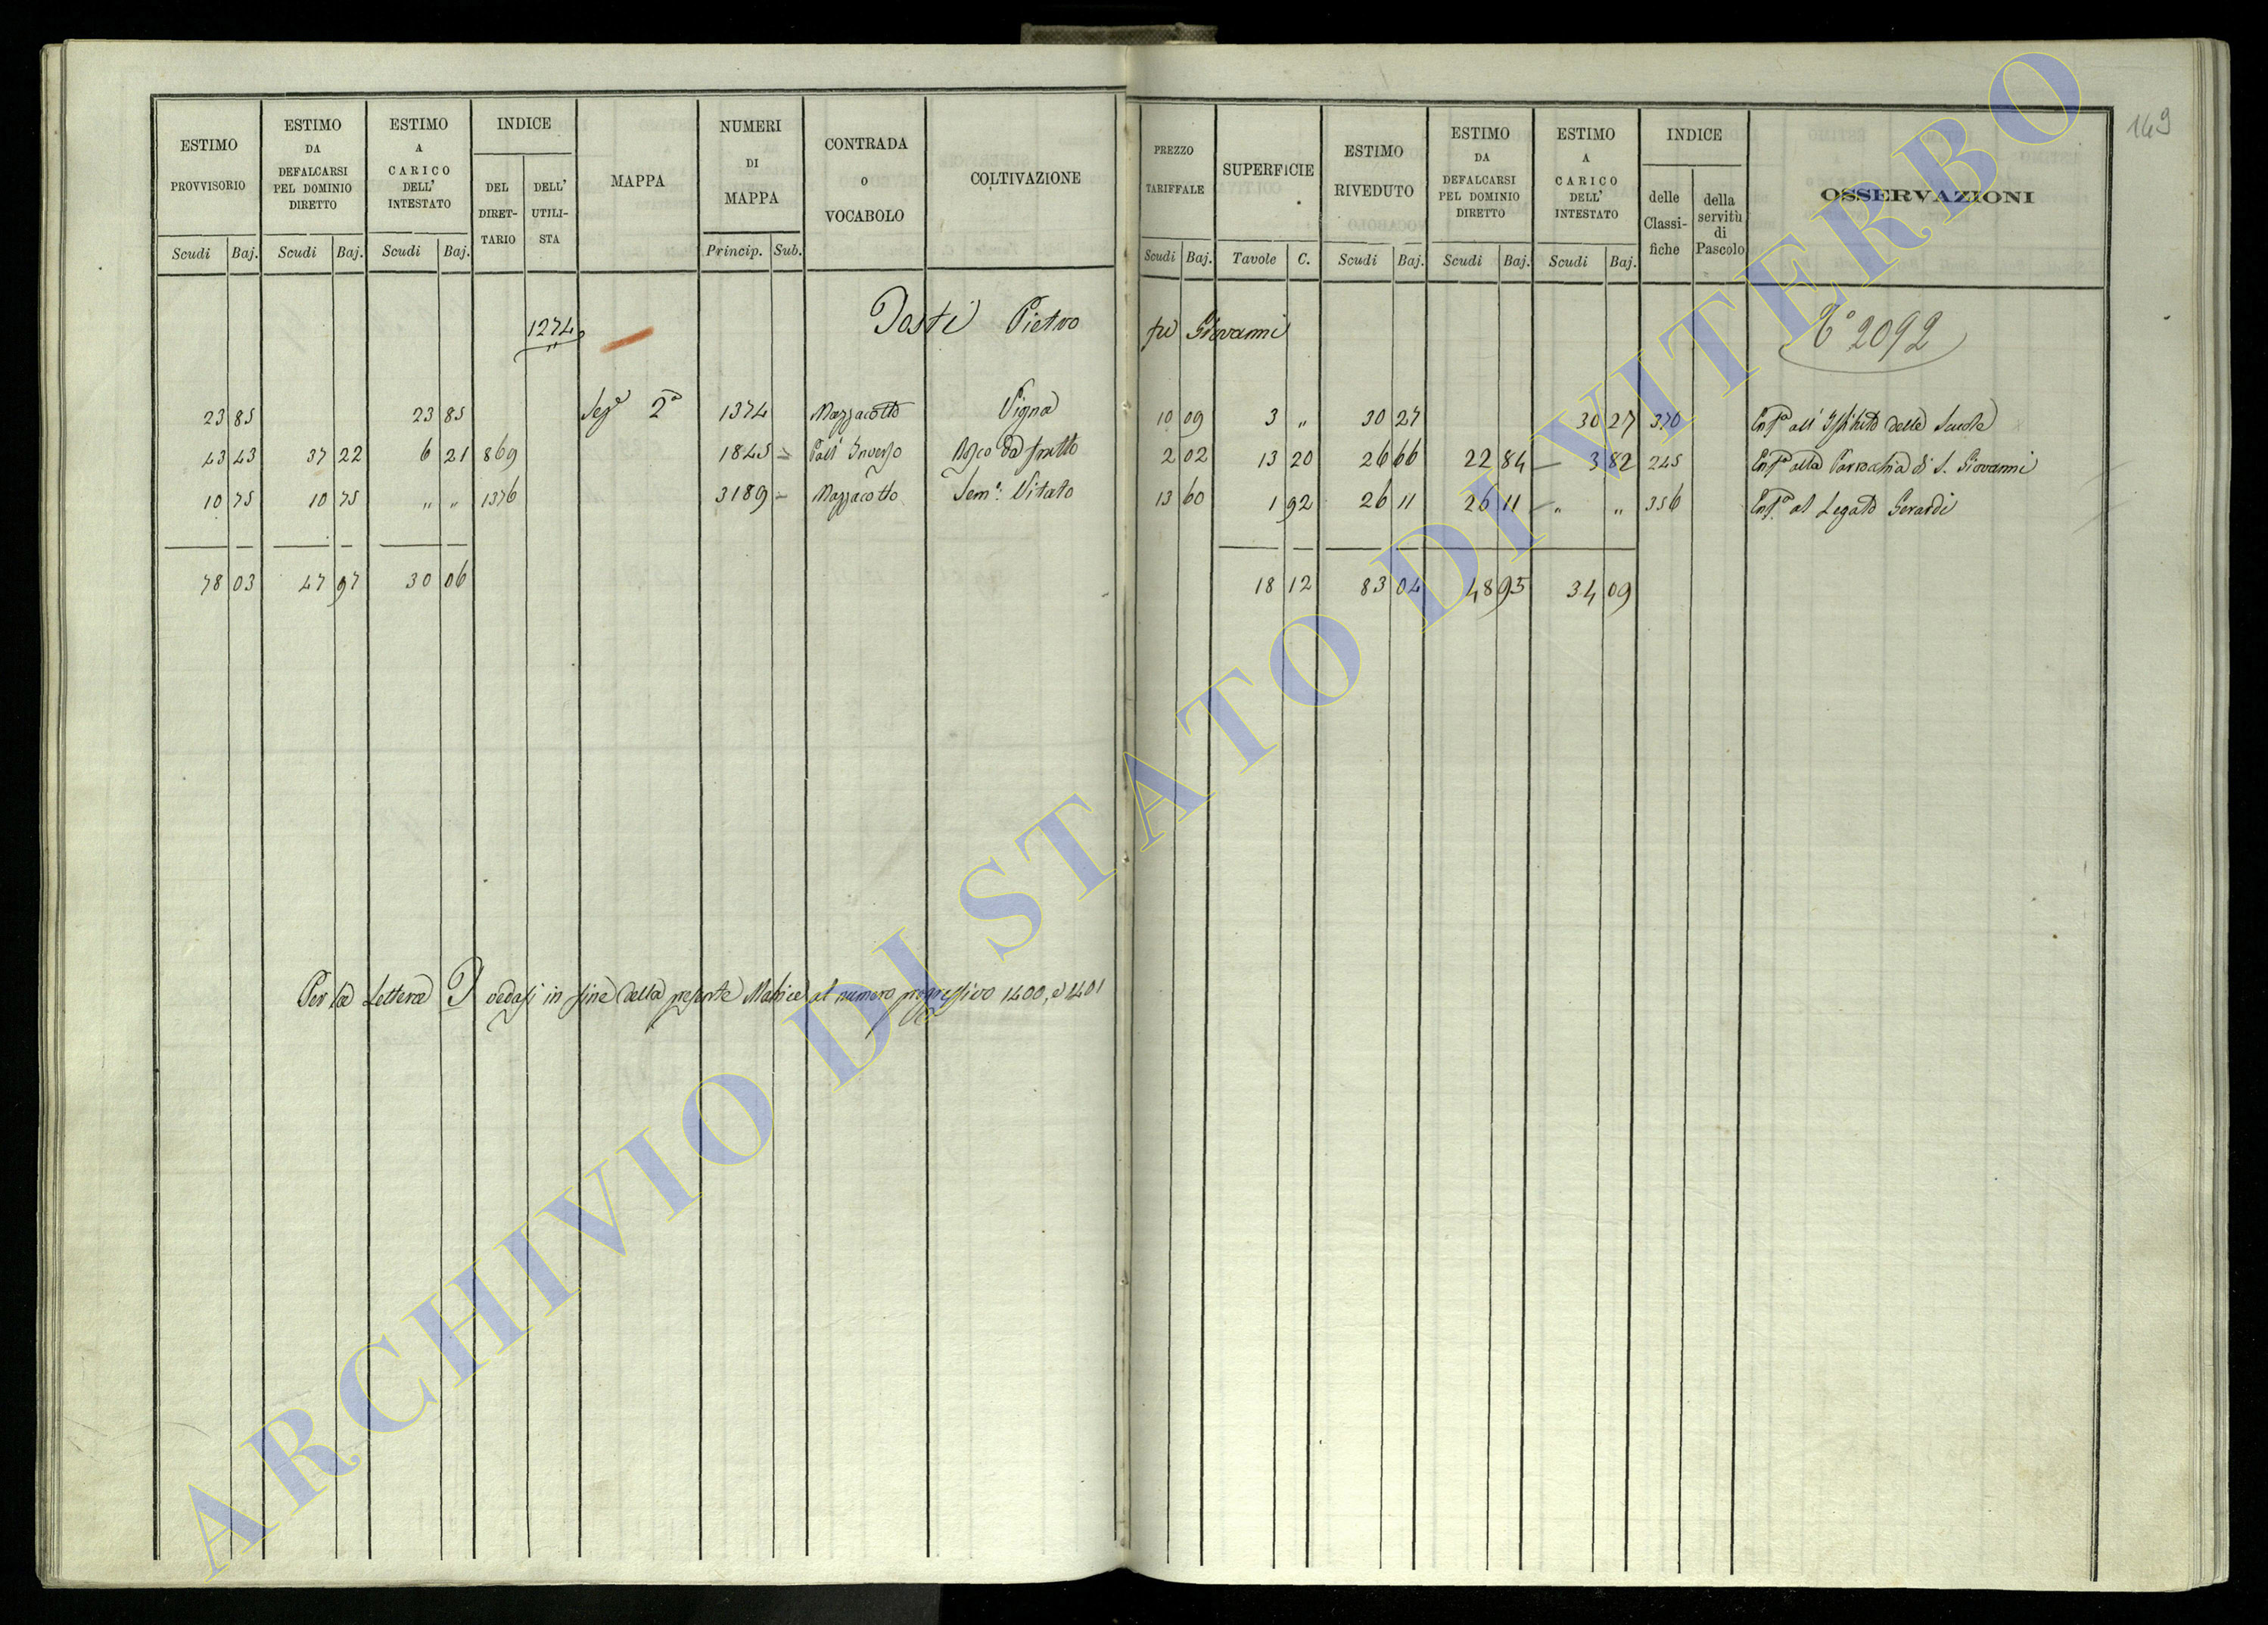 149
ESTIMO PROVVISORIO
ESTIMO DA DEFALCARSI PEL DOMINIO DIRETTO
ESTIMO A CARICO DELL' INTESTATO
INDICE
DEL DIRET-TARIO
DELL' UTILI-STA
MAPPA
NUMERI DI MAPPA
CONTRADA O VOCABOLO
COLTIVAZIONE
PREZZO TARIFFALE
SUPERFICIE
ESTIMO RIVEDUTO
ESTIMO DA DEFALCARSI PEL DOMINIO DIRETTO
ESTIMO A CARICO DELL' INTESTATO
INDICE
delle Classi-fiche
della servitù di Pascolo
OSSERVAZIONI
Scudi Baj. Scudi Baj. Scudi Baj. Princip. Sub. Scudi Baj. Tavole C. Scudi Baj. Scudi Baj. Scudi Baj.
1274 Pietro fu Giovanni 2092
23 85 23 85 Sezᵉ 2ª 1374 Mazzacotto Vigna 10 09 3 „ 30 27 30 27 370 Enfª all' Istituto delle Scuole
43 43 37 22 6 21 869 1845 da frutto 2 02 13 20 26 66 22 84 3 82 245 Enfª alla Parrocchia di S. Giovanni
10 75 10 75 „ „ 1376 3189 Mazzacotto Semᵉ Vitato 13 60 1 92 26 11 26 11 „ „ 356 Enfª al Legato Gerardi
78 03 47 97 30 06 18 12 83 04 48 95 34 09
Per la Lettera vedasi in fine della presente Matrice al numero progressivo 1400, e 1401
ARCHIVIO DI STATO DI VITERBO